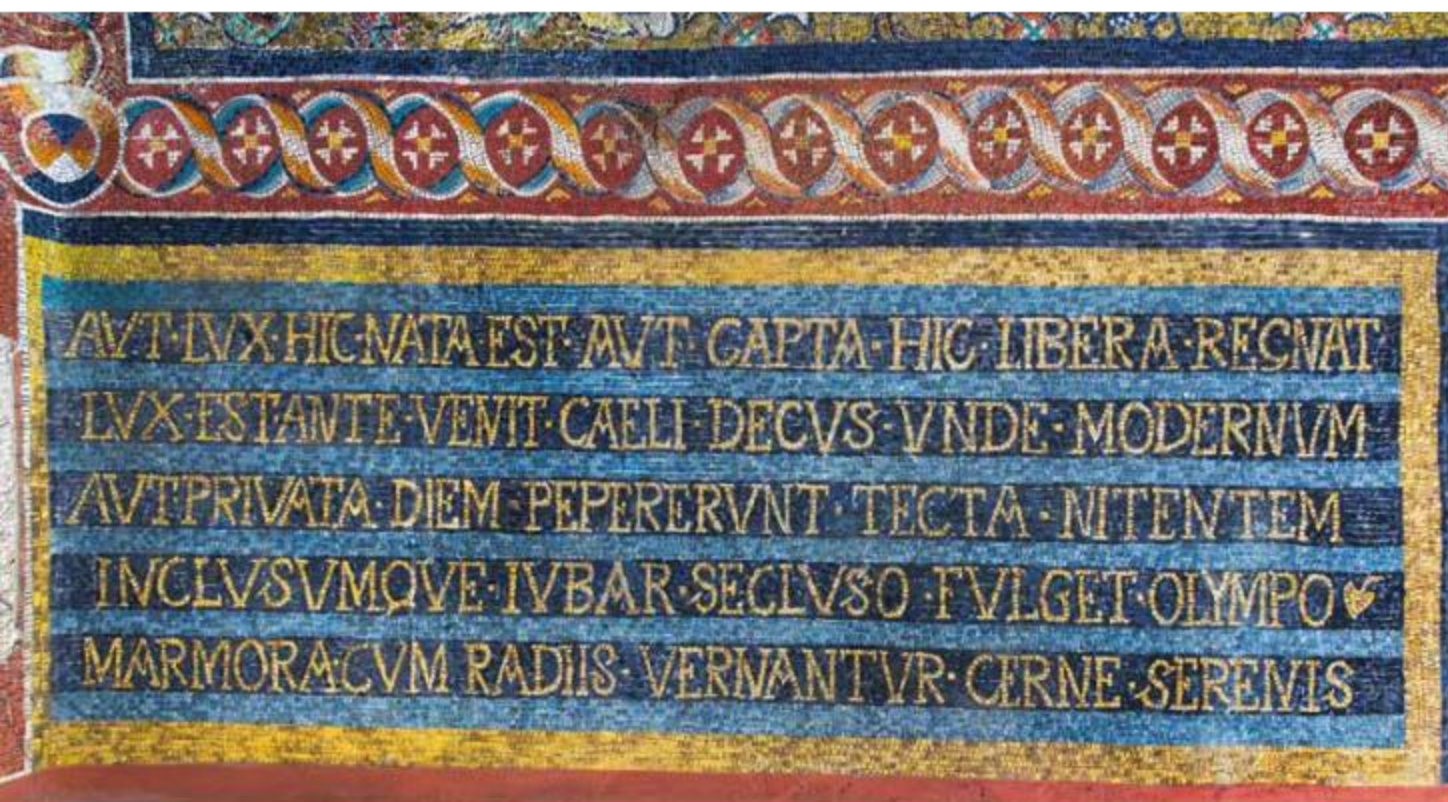 AVT·LVX·HIC·NATA EST·AVT·CAPTA·HIC·LIBERA·REGNAT
LVX·EST·ANTE·VENIT·CAELI·DECVS·VNDE·MODERNVM
AVT·PRIVATA·DIEM·PEPERERVNT·TECTA·NITENTEM
INCLVSVMQVE·IVBAR·SECLVSO·FVLGET·OLYMPO
MARMORA·CVM RADIIS·VERNANTVR·CERNE·SERENIS